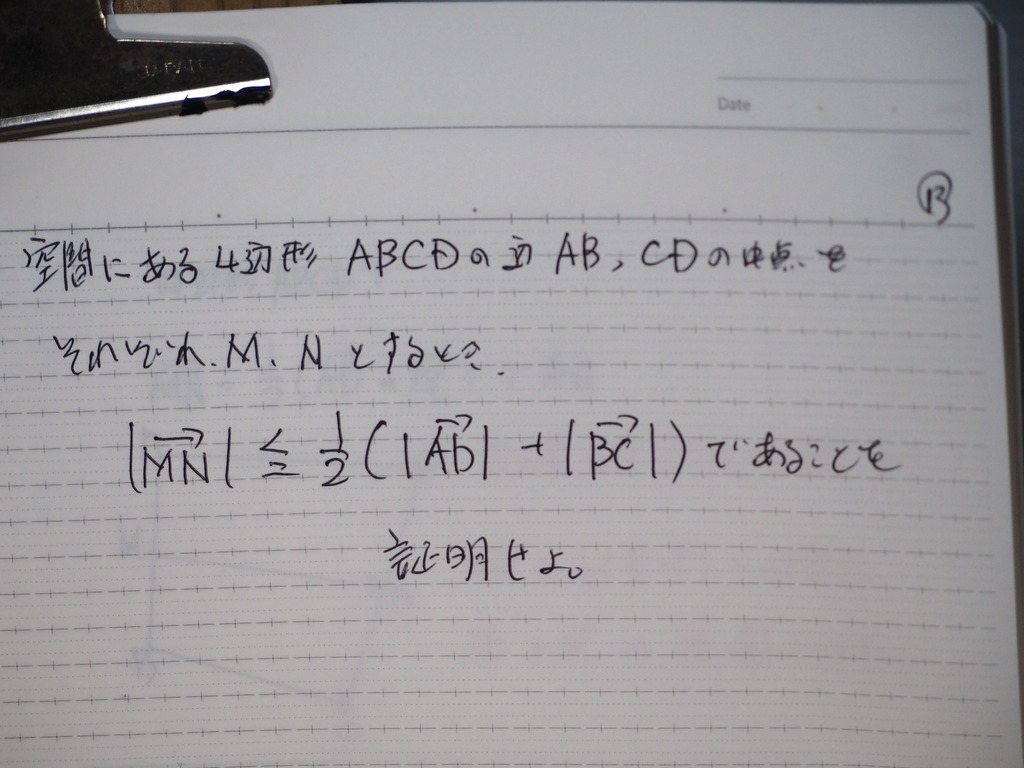 Date
⑬
空間にある4辺形 ABCDの辺 AB, CDの中点を
それぞれ M、N とするとき、
|MN→| ≦ 1/2 (|AD→| + |BC→|) であることを
証明せよ。